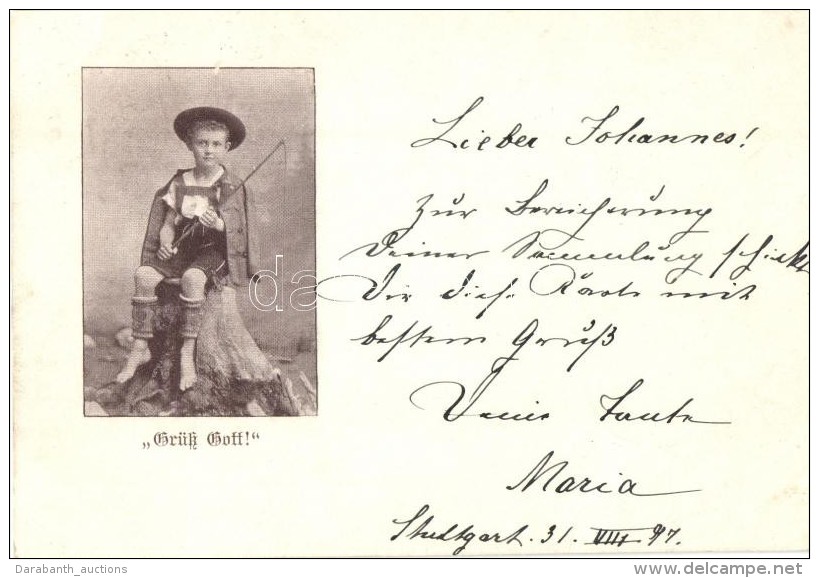 Lieber Johannes!
Zur Bereicherung
Deiner Sammlung schickt
Dir diese Karte mit
bestem Gruß
Deine Tante
Maria
Stuttgart. 31. VIII 97.
„Grüß Gott!“
da
Darabanth_auctions
www.delcampe.net